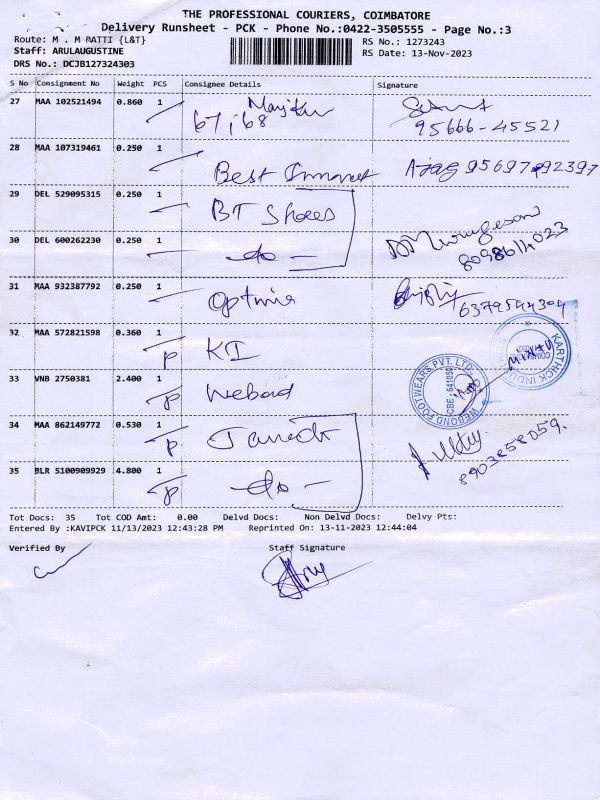 THE PROFESSIONAL COURIERS, COIMBATORE
Delivery Runsheet - PCK - Phone No.:0422-3505555 - Page No.:3
Route: M . M PATTI {L&T}
RS No.: 1273243
Staff: ARULAUGUSTINE
RS Date: 13-Nov-2023
DRS No.: DCJB127324303
S No Consignment No Weight PCS Consignee Details Signature
27 MAA 102521494 0.860 1
67,68
95666-45521
28 MAA 107319461 0.250 1
Best
29 DEL 529095315 0.250 1 BT Shoes
30 DEL 600262230 0.250 1 -do-
8098614023
31 MAA 932387792 0.250 1
32 MAA 572821598 0.360 1 P KI
KARTHICK
33 VNB 2750381 2.400 1 P Webond
WEBOND FOOTWEARS PVT. LTD.
CBE - 641050
34 MAA 862149772 0.530 1 P
35 BLR 5100909929 4.800 1 P -do-
Tot Docs: 35 Tot COD Amt: 0.00 Delvd Docs: Non Delvd Docs: Delvy Pts:
Entered By :KAVIPCK 11/13/2023 12:43:28 PM Reprinted On: 13-11-2023 12:44:04
Verified By Staff Signature